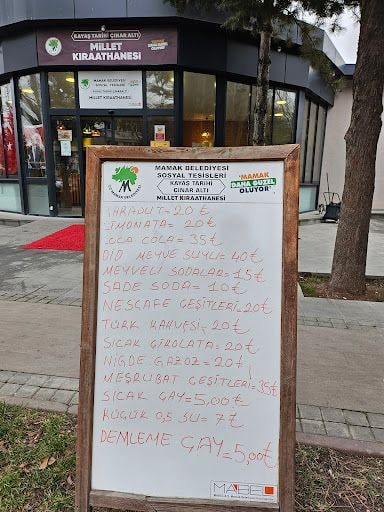 KAYAŞ TARİHİ ÇINAR ALTI
MİLLET
KIRAATHANESİ
MAMAK BELEDİYESİ
SOSYAL TESİSLERİ
KAYAŞ TARİHİ ÇINAR ALTI
MİLLET KIRAATHANESİ
MAMAK BELEDİYESİ
SOSYAL TESİSLERİ
KAYAŞ TARİHİ
ÇINAR ALTI
MİLLET KIRAATHANESİ
'MAMAK
DAHA GÜZEL
OLUYOR'
KARADUT=20 ₺
LİMONATA=20₺
COCA COLA=35₺
DİD MEYVE SUYU=40₺
MEYVELİ SODALAR=15₺
SADE SODA=10₺
NESCAFE ÇEŞİTLERİ=20₺
TÜRK KAHVESİ=20₺
SICAK ÇİKOLATA=20₺
NİĞDE GAZOZ=20₺
MEŞRUBAT ÇEŞİTLERİ=35₺
SICAK ÇAY=5,00₺
KÜÇÜK 0,5 SU=7₺
DEMLEME ÇAY=5,00₺